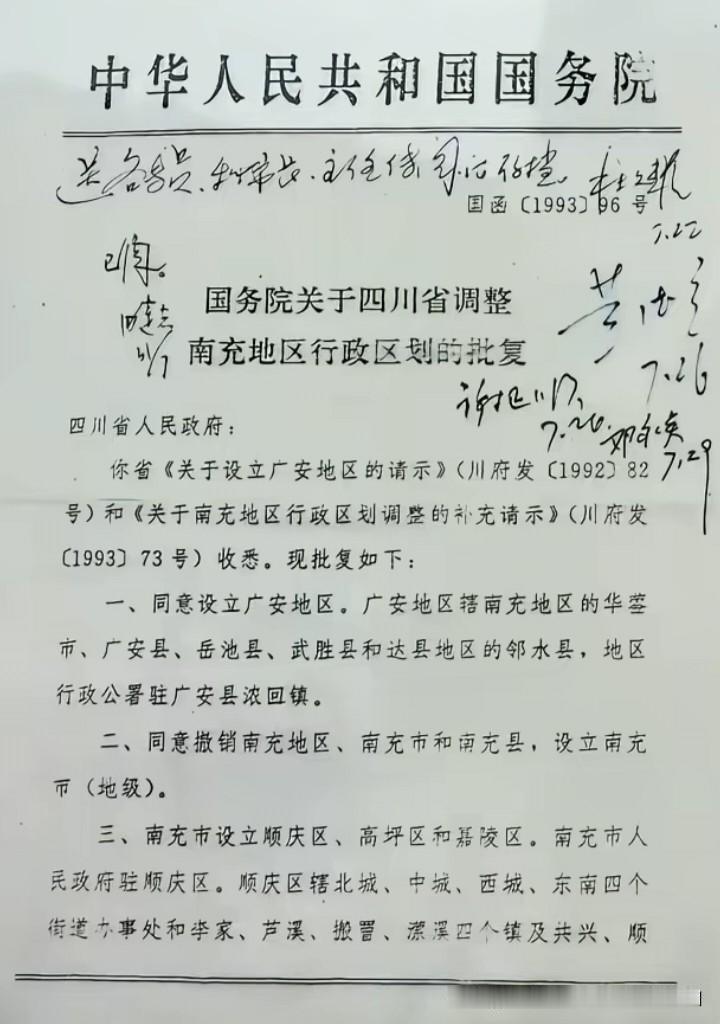 中华人民共和国国务院
送各委员、秘书长、主任传阅后存档。
国函〔1993〕96号
7.22
已阅。
国务院关于四川省调整
南充地区行政区划的批复
7.26
7.26.
7.29
四川省人民政府：
你省《关于设立广安地区的请示》（川府发〔1992〕82
号）和《关于南充地区行政区划调整的补充请示》（川府发
〔1993〕73号）收悉。现批复如下：
一、同意设立广安地区。广安地区辖南充地区的华蓥
市、广安县、岳池县、武胜县和达县地区的邻水县，地区
行政公署驻广安县浓回镇。
二、同意撤销南充地区、南充市和南充县，设立南充
市（地级）。
三、南充市设立顺庆区、高坪区和嘉陵区。南充市人
民政府驻顺庆区。顺庆区辖北城、中城、西城、东南四个
街道办事处和李家、芦溪、搬罾、潆溪四个镇及共兴、顺